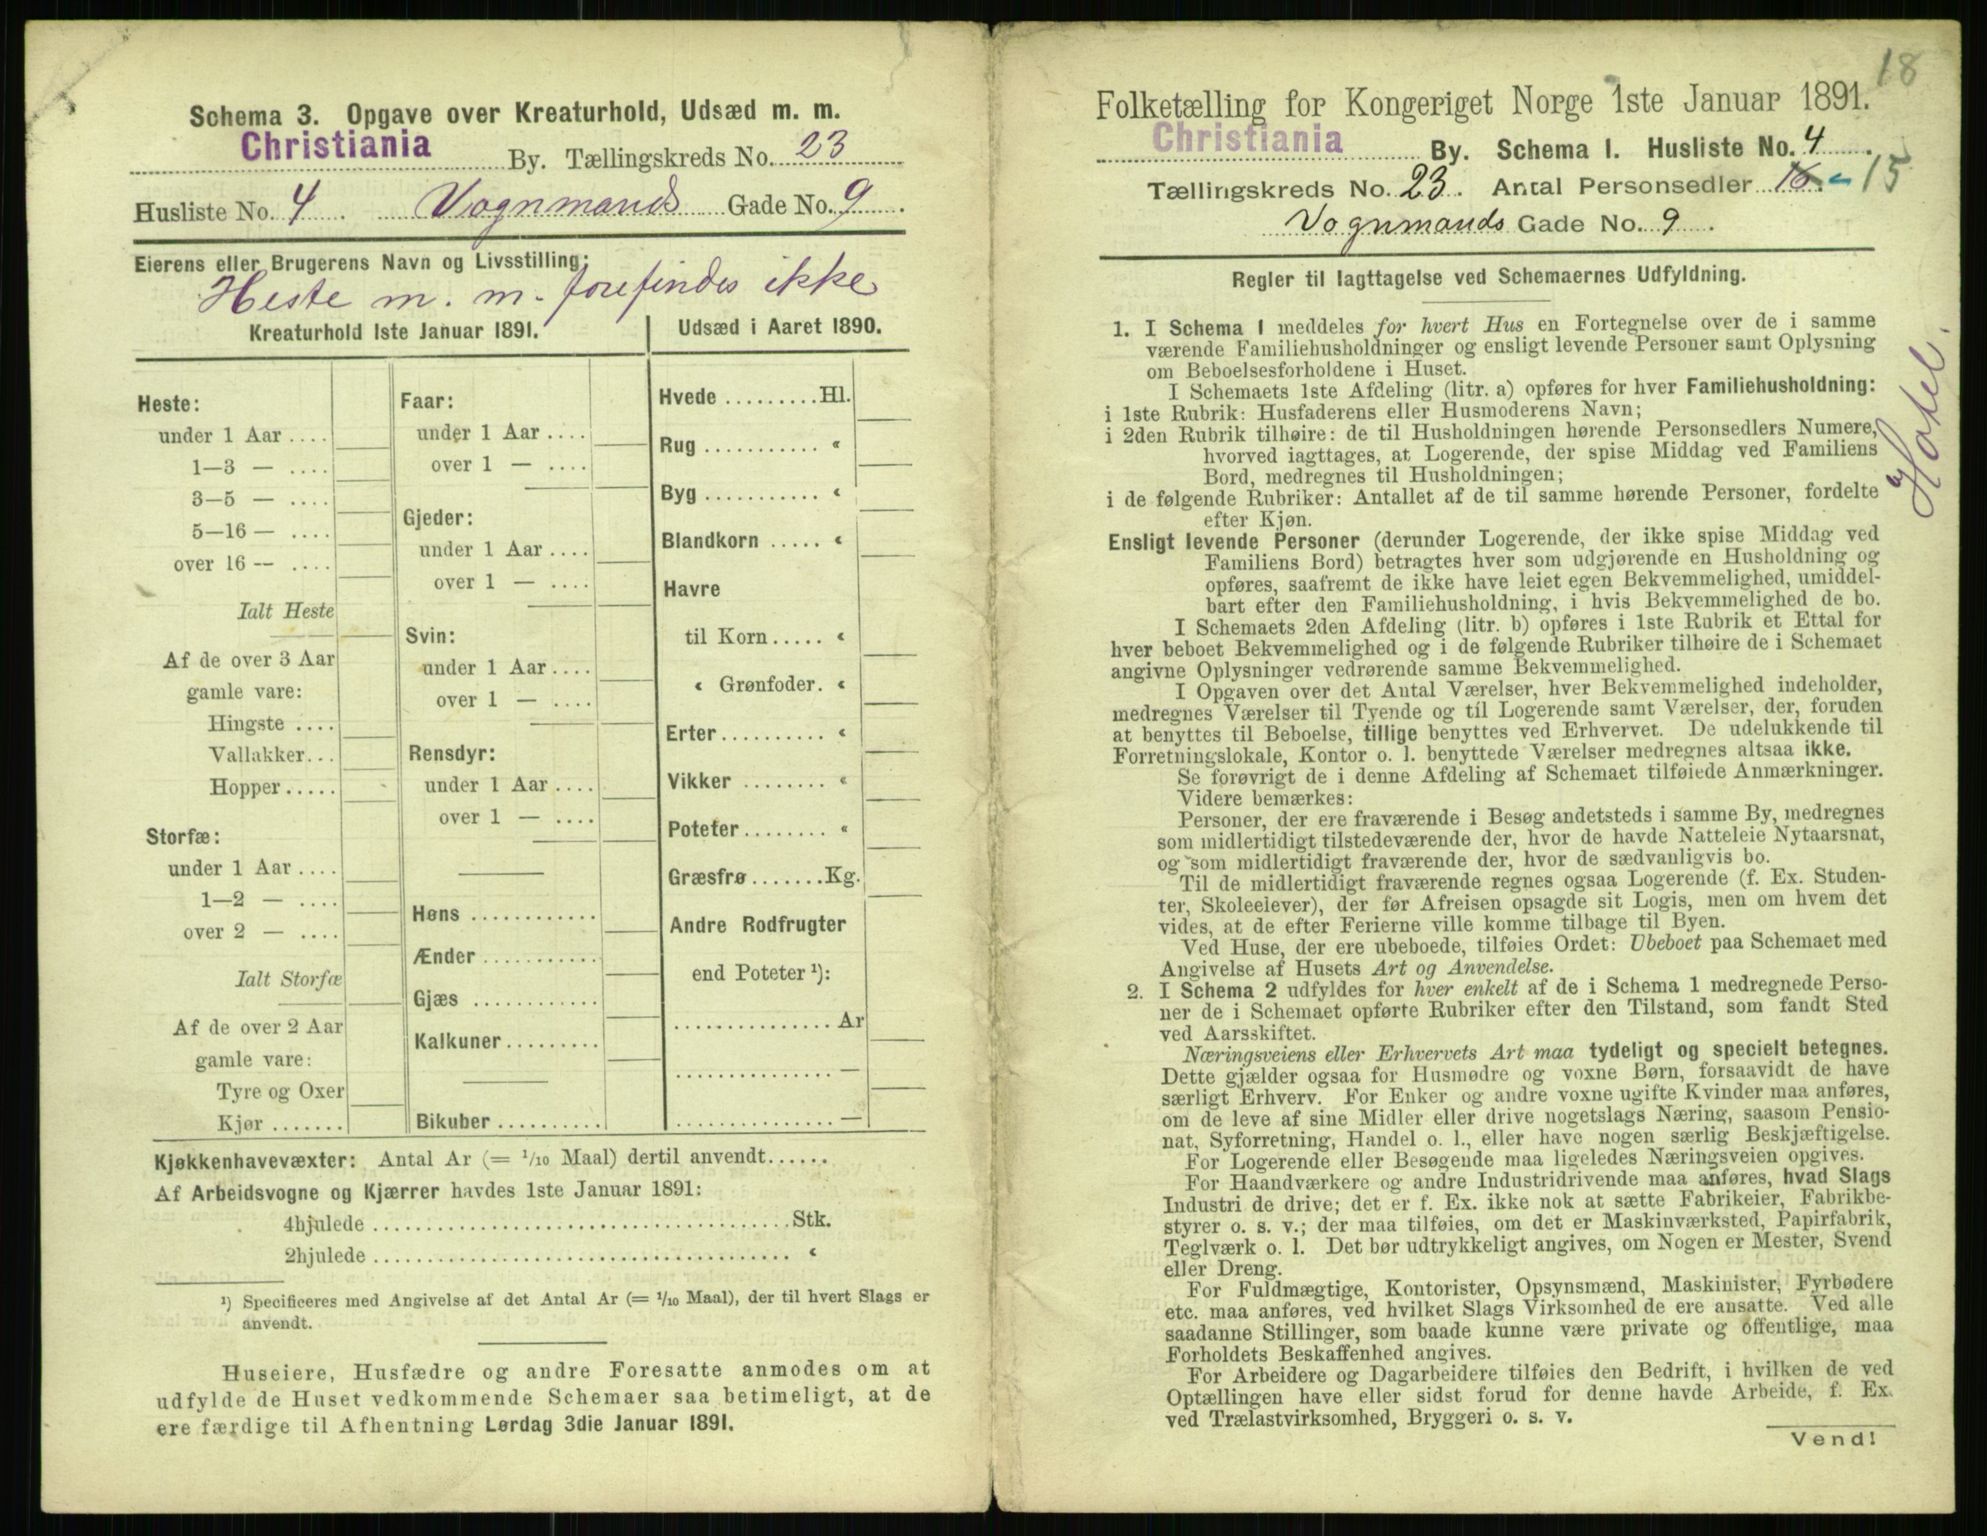 Schema 3. Opgave over Kreaturhold, Udsæd m. m.
Christiania By. Tællingskreds No. 23
Husliste No. 4 Vognmands Gade No. 9
Eierens eller Brugerens Navn og Livsstilling:
Heste m. m. forefindes ikke
Kreaturhold 1ste Januar 1891.
Heste:
under 1 Aar ....
1—3 — ....
3—5 — ....
5—16 — ....
over 16 — ....
Ialt Heste
Af de over 3 Aar
gamle vare:
Hingste ....
Vallakker...
Hopper.....
Storfæ:
under 1 Aar ....
1—2 — ....
over 2 — ....
Ialt Storfæ
Af de over 2 Aar
gamle vare:
Tyre og Oxer
Kjør .......
Faar:
under 1 Aar ....
over 1 — ....
Gjeder:
under 1 Aar ....
over 1 — ....
Svin:
under 1 Aar ....
over 1 — ....
Rensdyr:
under 1 Aar ....
over 1 — ....
Høns ............
Ænder ...........
Gjæs ............
Kalkuner.........
Bikuber ..........
Udsæd i Aaret 1890.
Hvede .........Hl.
Rug ........... «
Byg ........... «
Blandkorn ..... «
Havre
til Korn..... «
« Grønfoder. «
Erter.......... «
Vikker ........ «
Poteter........ «
Græsfrø.......Kg.
Andre Rodfrugter
end Poteter ¹):
............... Ar
............... —
............... —
Kjøkkenhavevæxter: Antal Ar (= 1/10 Maal) dertil anvendt......
Af Arbeidsvogne og Kjærrer havdes 1ste Januar 1891:
4hjulede ........................................Stk.
2hjulede ........................................ «
¹) Specificeres med Angivelse af det Antal Ar (= 1/10 Maal), der til hvert Slags er
anvendt.
Huseiere, Husfædre og andre Foresatte anmodes om at
udfylde de Huset vedkommende Schemaer saa betimeligt, at de
ere færdige til Afhentning Lørdag 3die Januar 1891.
18
Folketælling for Kongeriget Norge 1ste Januar 1891.
Christiania By. Schema I. Husliste No. 4
Tællingskreds No. 23. Antal Personsedler 16. - 15
Vognmands Gade No. 9
Regler til Iagttagelse ved Schemaernes Udfyldning.
1. I Schema 1 meddeles for hvert Hus en Fortegnelse over de i samme
værende Familiehusholdninger og ensligt levende Personer samt Oplysning
om Beboelsesforholdene i Huset.
I Schemaets 1ste Afdeling (litr. a) opføres for hver Familiehusholdning:
i 1ste Rubrik: Husfaderens eller Husmoderens Navn;
i 2den Rubrik tilhøire: de til Husholdningen hørende Personsedlers Numere,
hvorved iagttages, at Logerende, der spise Middag ved Familiens
Bord, medregnes til Husholdningen;
i de følgende Rubriker: Antallet af de til samme hørende Personer, fordelte
efter Kjøn.
Ensligt levende Personer (derunder Logerende, der ikke spise Middag ved
Familiens Bord) betragtes hver som udgjørende en Husholdning og
opføres, saafremt de ikke have leiet egen Bekvemmelighed, umiddel-
bart efter den Familiehusholdning, i hvis Bekvemmelighed de bo.
I Schemaets 2den Afdeling (litr. b) opføres i 1ste Rubrik et Ettal for
hver beboet Bekvemmelighed og i de følgende Rubriker tilhøire de i Schemaet
angivne Oplysninger vedrørende samme Bekvemmelighed.
I Opgaven over det Antal Værelser, hver Bekvemmelighed indeholder,
medregnes Værelser til Tyende og til Logerende samt Værelser, der, foruden
at benyttes til Beboelse, tillige benyttes ved Erhvervet. De udelukkende til
Forretningslokale, Kontor o. l. benyttede Værelser medregnes altsaa ikke.
Se forøvrigt de i denne Afdeling af Schemaet tilføiede Anmærkninger.
Videre bemærkes:
Personer, der ere fraværende i Besøg andetsteds i samme By, medregnes
som midlertidigt tilstedeværende der, hvor de havde Natteleie Nytaarsnat,
og som midlertidigt fraværende der, hvor de sædvanligvis bo.
Til de midlertidigt fraværende regnes ogsaa Logerende (f. Ex. Studen-
ter, Skoleelever), der før Afreisen opsagde sit Logis, men om hvem det
vides, at de efter Ferierne ville komme tilbage til Byen.
Ved Huse, der ere ubeboede, tilføies Ordet: Ubeboet paa Schemaet med
Angivelse af Husets Art og Anvendelse.
2. I Schema 2 udfyldes for hver enkelt af de i Schema 1 medregnede Perso-
ner de i Schemaet opførte Rubriker efter den Tilstand, som fandt Sted
ved Aarsskiftet.
Næringsveiens eller Erhvervets Art maa tydeligt og specielt betegnes.
Dette gjælder ogsaa for Husmødre og voxne Børn, forsaavidt de have
særligt Erhverv. For Enker og andre voxne ugifte Kvinder maa anføres,
om de leve af sine Midler eller drive nogetslags Næring, saasom Pensio-
nat, Syforretning, Handel o. l., eller have nogen særlig Beskjæftigelse.
For Logerende eller Besøgende maa ligeledes Næringsveien opgives.
For Haandværkere og andre Industridrivende maa anføres, hvad Slags
Industri de drive; det er f. Ex. ikke nok at sætte Fabrikeier, Fabrikbe-
styrer o. s. v.; der maa tilføies, om det er Maskinværksted, Papirfabrik,
Teglværk o. l. Det bør udtrykkeligt angives, om Nogen er Mester, Svend
eller Dreng.
For Fuldmægtige, Kontorister, Opsynsmænd, Maskinister, Fyrbødere
etc. maa anføres, ved hvilket Slags Virksomhed de ere ansatte. Ved alle
saadanne Stillinger, som baade kunne være private og offentlige, maa
Forholdets Beskaffenhed angives.
For Arbeidere og Dagarbeidere tilføies den Bedrift, i hvilken de ved
Optællingen have eller sidst forud for denne havde Arbeide, f. Ex.
ved Trælastvirksomhed, Bryggeri o. s. v.
Vend!
Hotel.